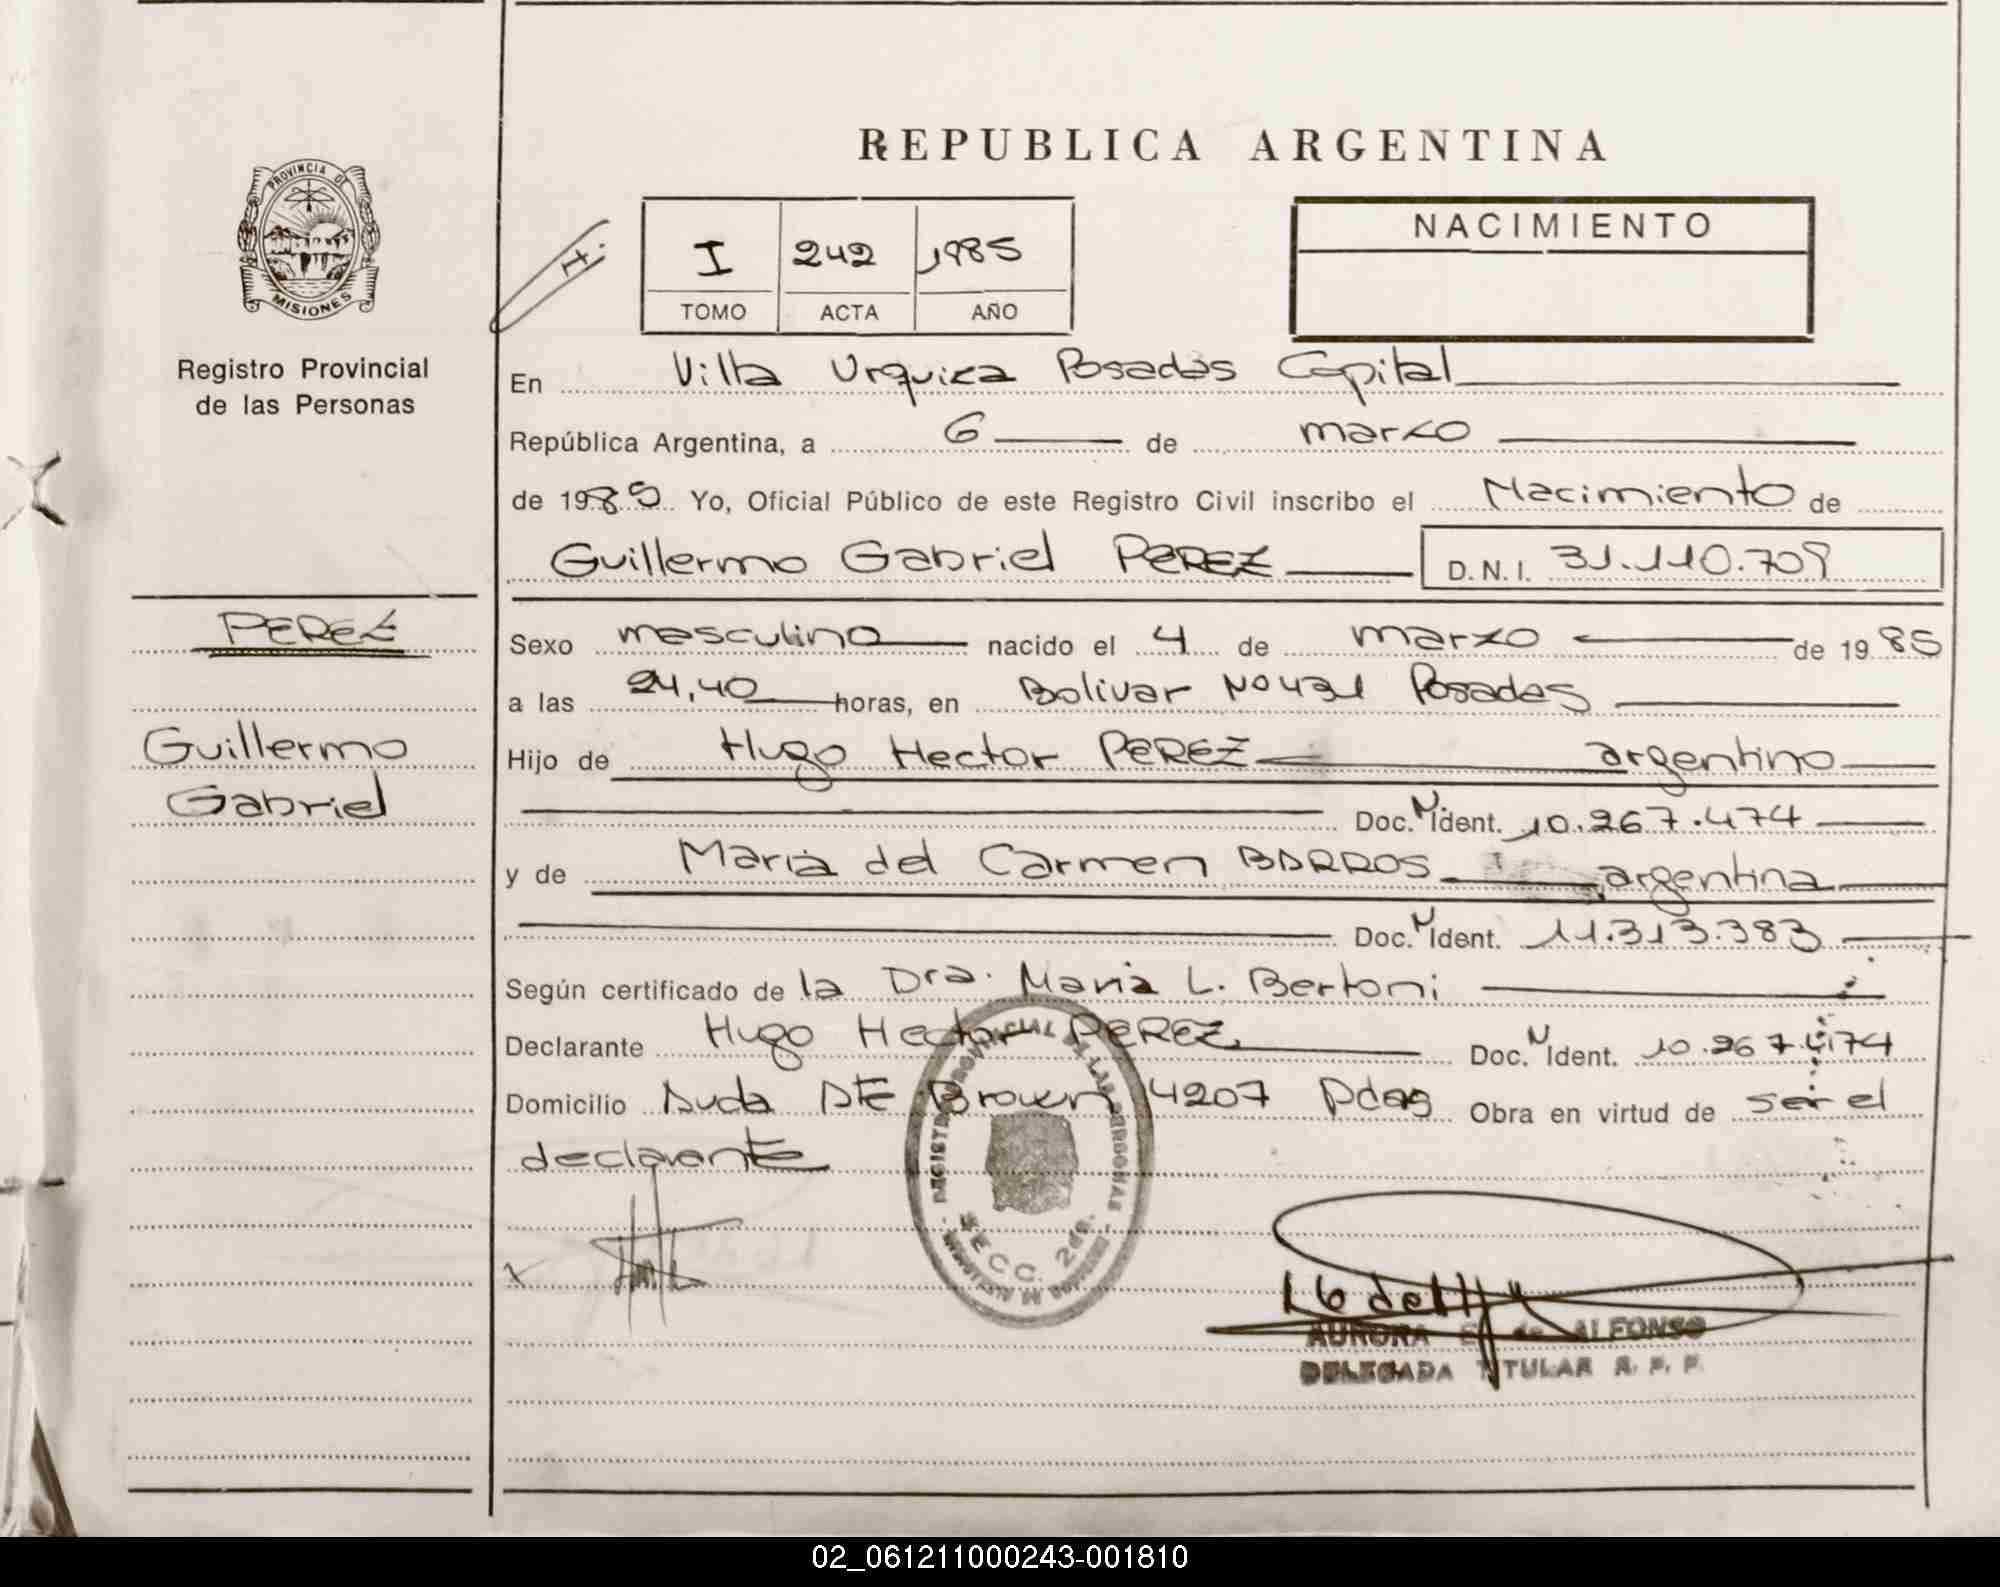 REPUBLICA ARGENTINA
PROVINCIA DE
MISIONES
Registro Provincial
de las Personas
H.
I 242 1985
TOMO ACTA AÑO
NACIMIENTO
En Villa Urquiza Posadas Capital
República Argentina, a 6 de marzo
de 1985 Yo, Oficial Público de este Registro Civil inscribo el Nacimiento de
Guillermo Gabriel PEREZ D.N.I. 31.110.709
PEREZ
Guillermo
Gabriel
Sexo masculino nacido el 4 de marzo de 1985
a las 24,40 horas, en Bolivar Nº 431 Posadas
Hijo de Hugo Hector PEREZ argentino
Doc. N Ident. 10.267.474
y de Maria del Carmen BARROS argentina
Doc. N Ident. 11.313.383
Según certificado de la Dra. Maria L. Bertoni
Declarante Hugo Hector PEREZ Doc. N Ident. 10.267.474
Domicilio Avda Brown 4207 Pdas Obra en virtud de ser el
declarante
SECC. 2da.
AURORA E. de ALFONSO
DELEGADA TITULAR R. P. P.
02_061211000243-001810